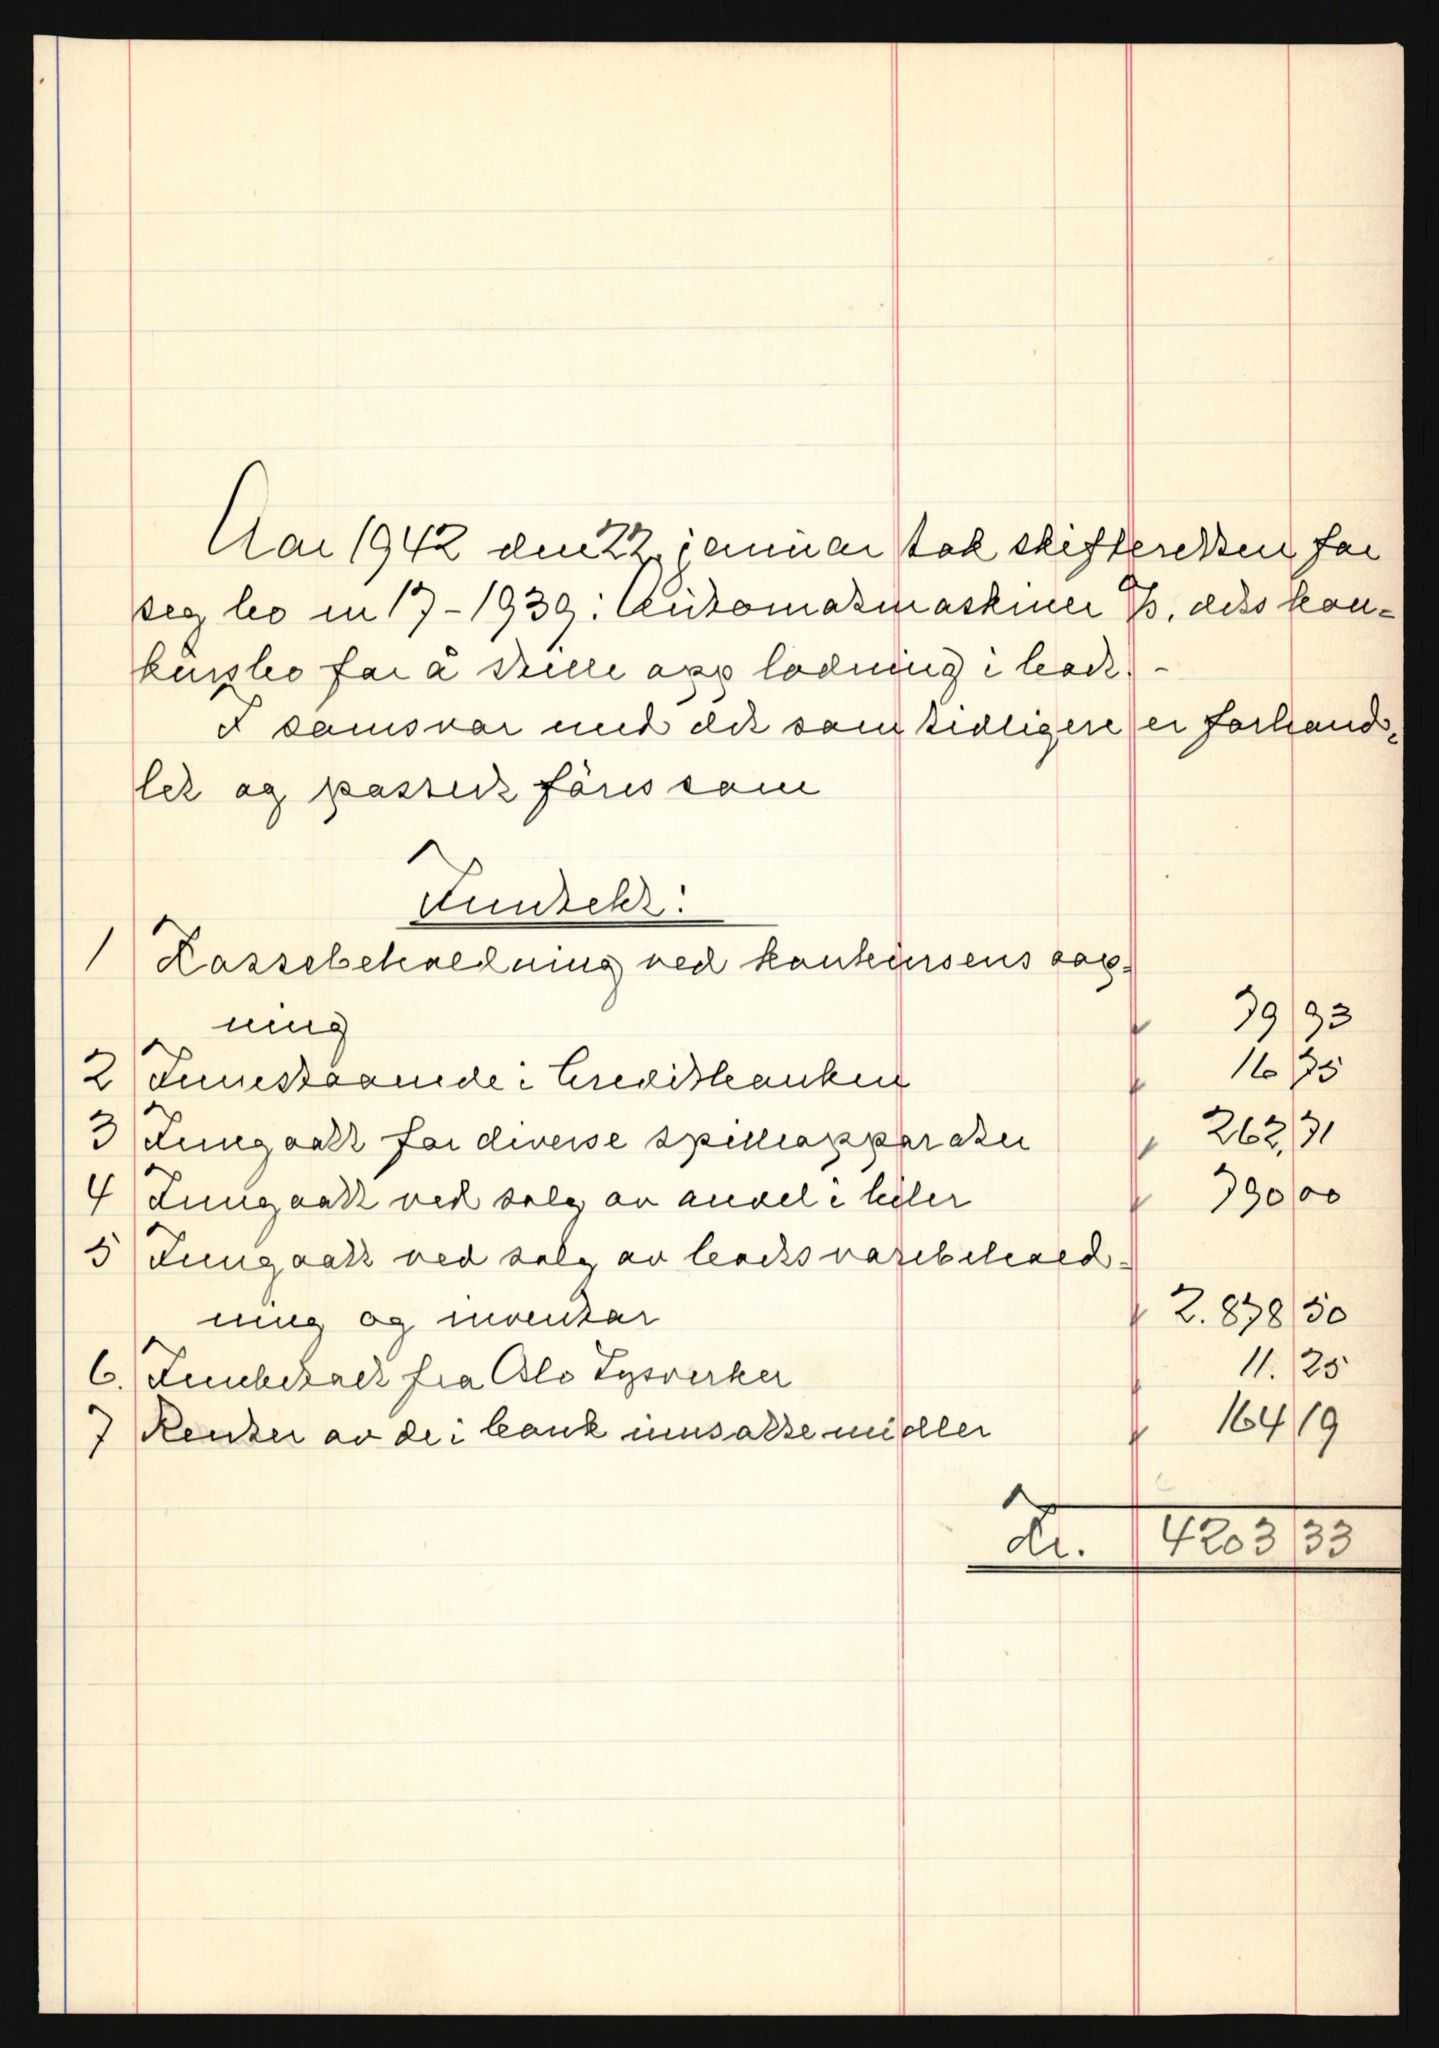 Aar 1942 den 22. januar tok skifteretten for
seg bo nr 17-1939: Automatmaskiner A/S, dets kon-
kursbo for å stille opp lodning i boet. -
I samsvar med det som tidligere er forhand-
let og passert føres som
Inntekt:
1 Kassebeholdning ved konkursens aap-
ning " 79 93
2 Innestaaende i Creditbanken " 16 75
3 Inngaatt for diverse spilleapparater " 262, 71
4 Inngaatt ved salg av andel i biler " 790 00
5 Inngaatt ved salg av boets varebehold-
ning og inventar " 2.878 50
6. Innbetalt fra Oslo Lysverker " 11. 25
7 Renter av de i bank innsatte midler " 164 19
Kr. 4203 33